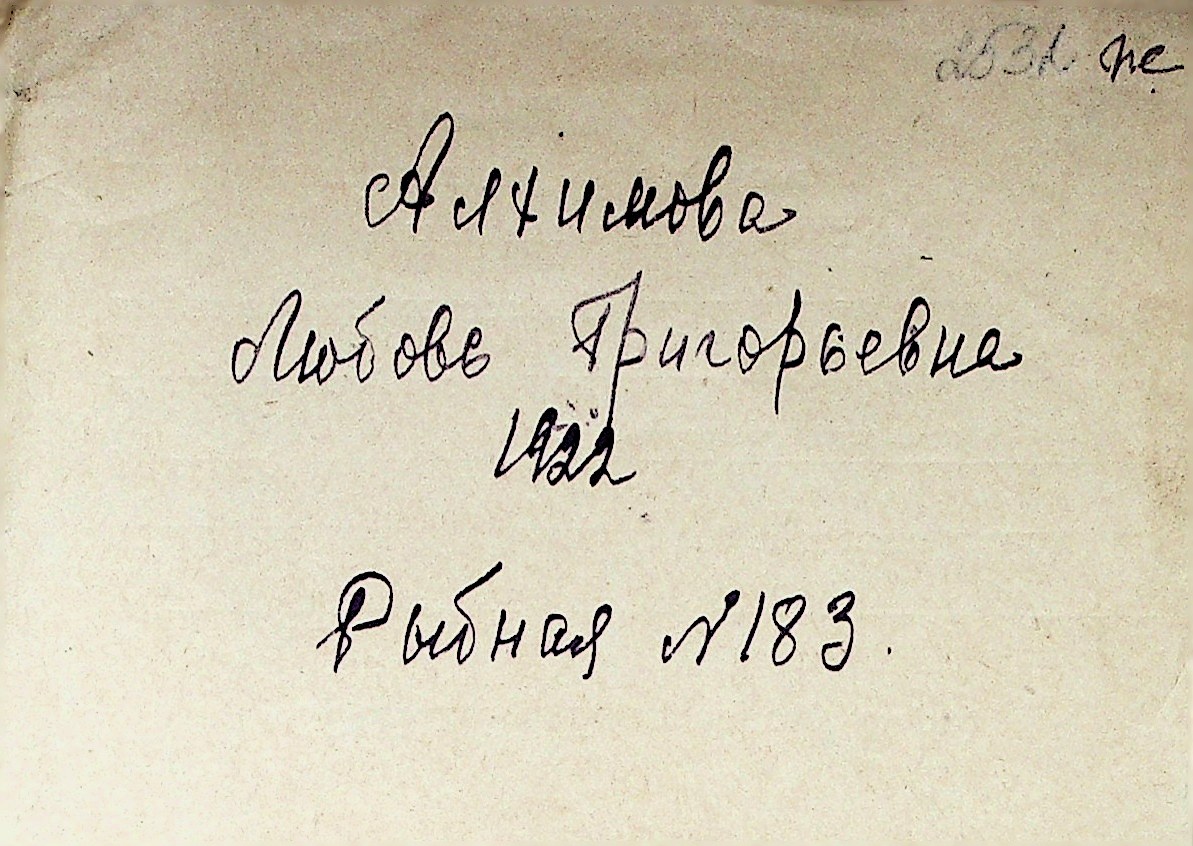 пе
Алхимова
Любовь Григорьевна
1922
Рыбная №183.